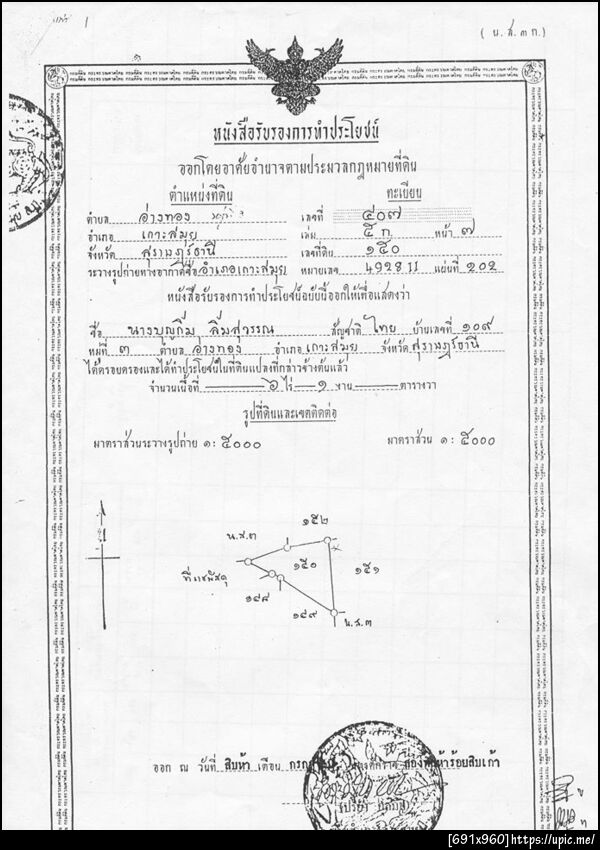 ( น.ส.๓ ก.)
หนังสือรับรองการทำประโยชน์
ออกโดยอาศัยอำนาจตามประมวลกฎหมายที่ดิน
ตำแหน่งที่ดิน ทะเบียน
ตำบล อ่างทอง เลขที่ ๔๐๗
อำเภอ เกาะสมุย เล่ม ๕ ก. หน้า ๗
จังหวัด สุราษฎร์ธานี เลขที่ดิน ๑๕๐
ระวางรูปถ่ายทางอากาศชื่อ อำเภอเกาะสมุย หมายเลข 4928 II แผ่นที่ ๒๐๒
หนังสือรับรองการทำประโยชน์ฉบับนี้ออกให้เพื่อแสดงว่า
ชื่อ นางบุญกิ่ม ลิ่มสุวรรณ สัญชาติ ไทย บ้านเลขที่ ๑๐๙
หมู่ที่ ๓ ตำบล อ่างทอง อำเภอ เกาะสมุย จังหวัด สุราษฎร์ธานี
ได้ครอบครองและได้ทำประโยชน์ในที่ดินแปลงที่กล่าวข้างต้นแล้ว
จำนวนเนื้อที่ ๖ ไร่ ๑ งาน ตารางวา
รูปที่ดินและเขตติดต่อ
มาตราส่วนระวางรูปถ่าย ๑: ๕๐๐๐ มาตราส่วน ๑: ๕๐๐๐
๑๕๒
น.ส.๓
๑๕๐ ๑๕๑
ที่ราชพัสดุ
๑๔๘
๑๔๙ น.ส.๓
ออก ณ วันที่ สิบห้า เดือน สองพันห้าร้อยสิบเก้า
[691x960]https://upic.me/